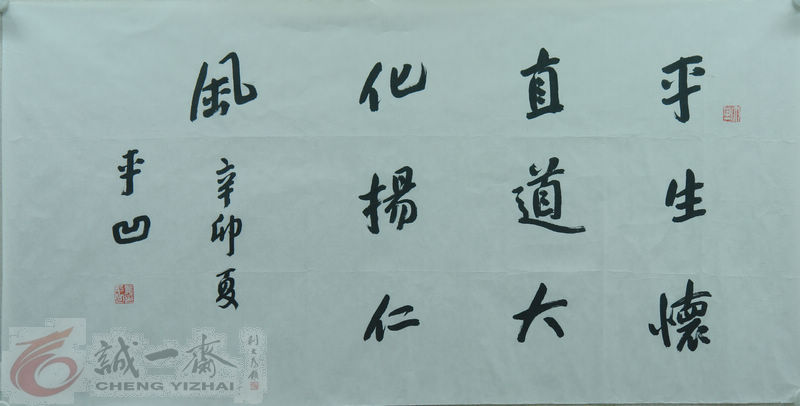 平生懷
直道大
化揚仁
風
辛卯夏
平凹
誠一齋
CHENG YIZHAI